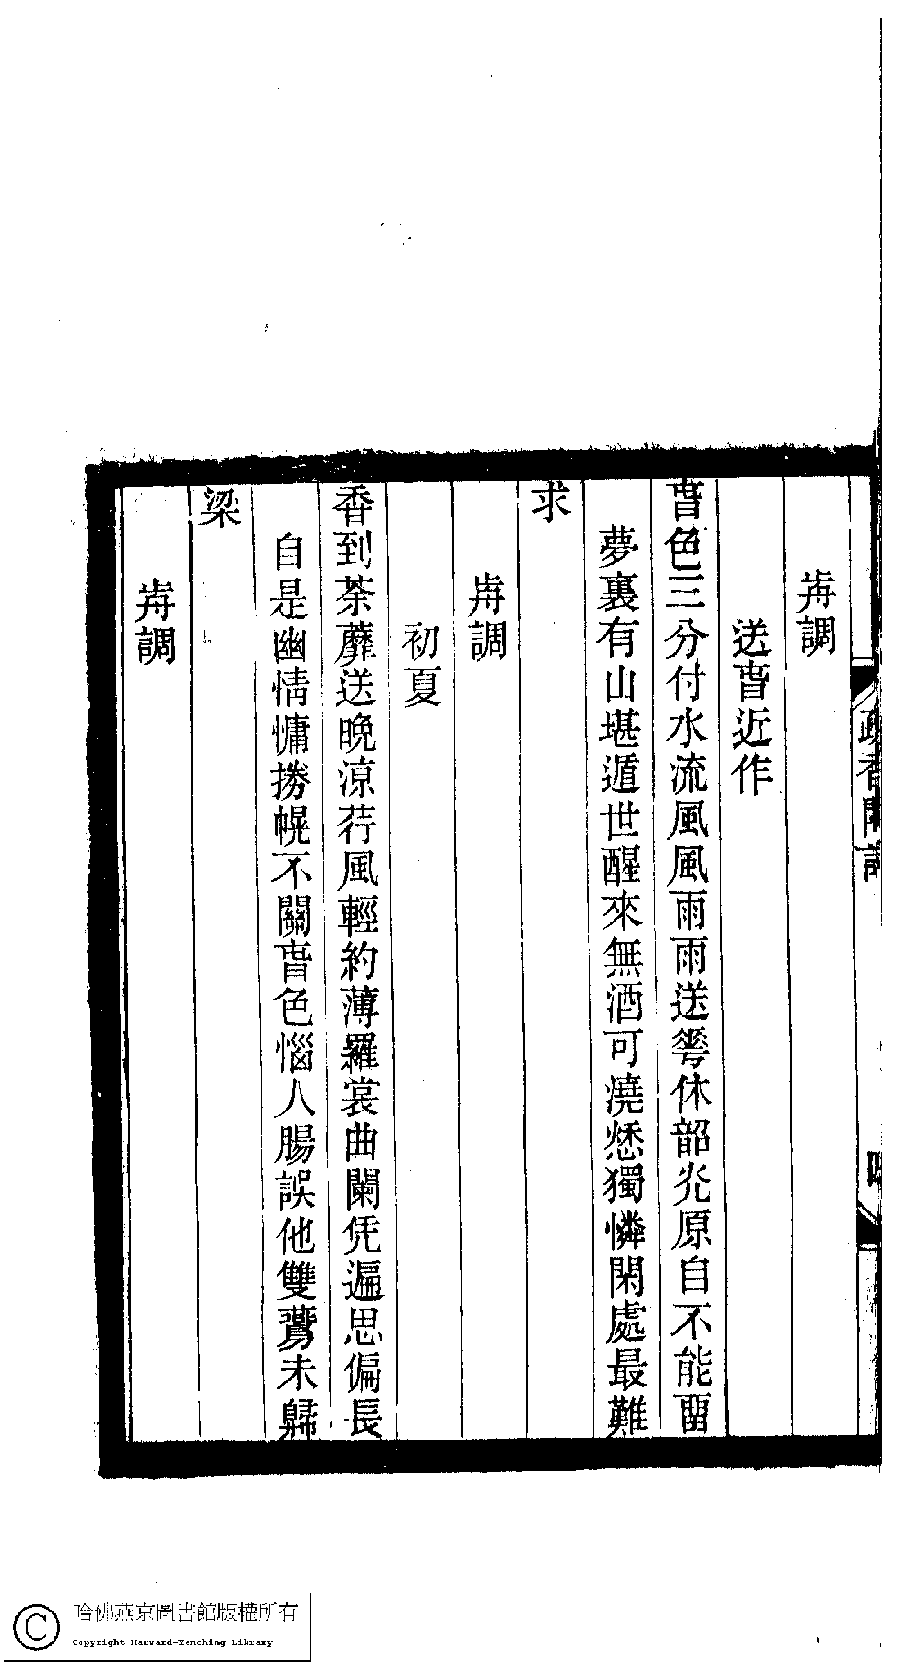 歬調
送萅近作
萅色三分付水流風風雨雨送蕚休韶灮原自不能畱
夢裏有山堪遁世醒來無酒可澆愁獨憐閑處最難
求
歬調
初夏
香到荼蘼送晚涼荇風輕約薄羅裳曲闌凭遍思偏長
自是幽情慵捲幌不關萅色惱人腸誤他雙鷰未歸
梁
歬調
哈佛燕京圖書館版權所有
Copyright Harvard-Yenching Library